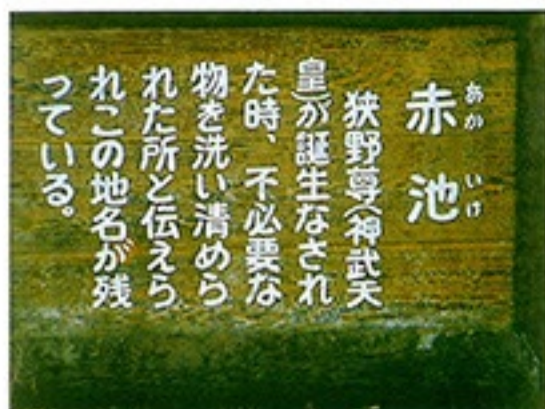 赤池
あかいけ
狭野尊(神武天
皇)が誕生なされ
た時、不必要な
物を洗い清めら
れた所と伝えら
れこの地名が残
っている。